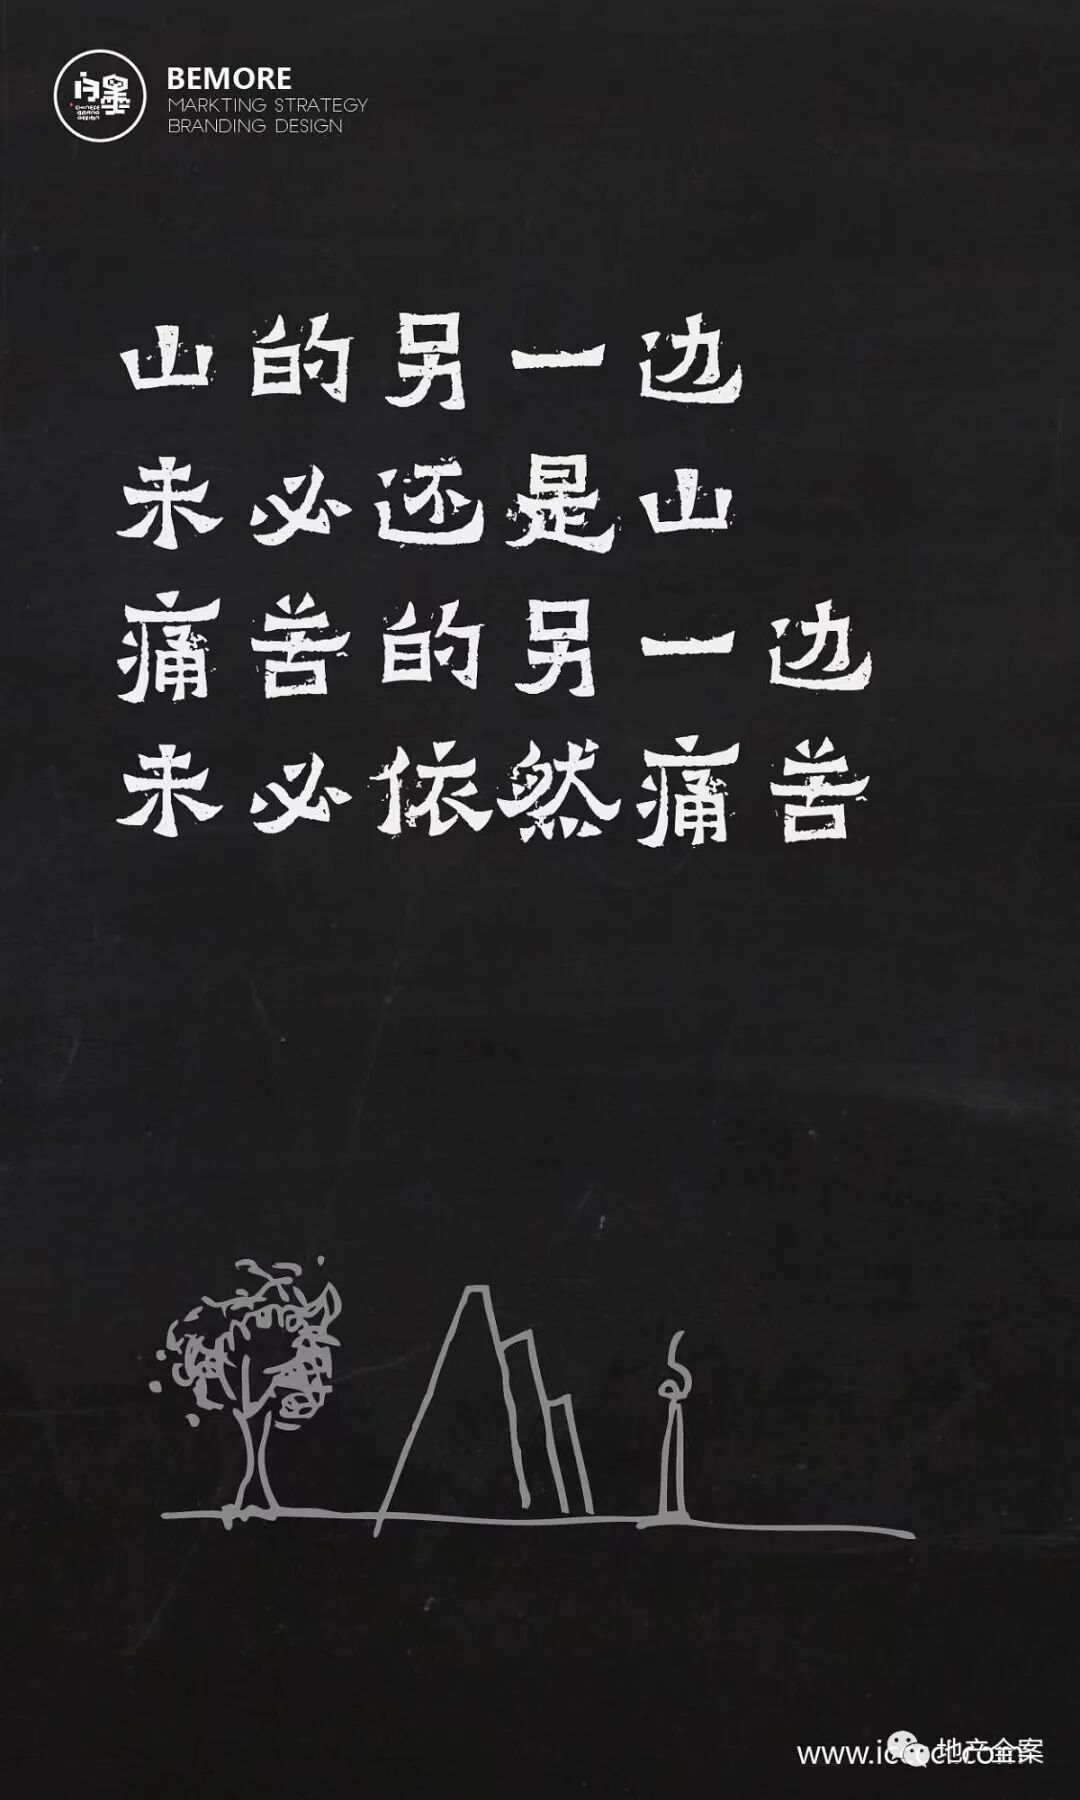 白墨
CHINESE
BRAND
DESIGN
BEMORE
MARKTING STRATEGY
BRANDING DESIGN
山的另一边
未必还是山
痛苦的另一边
未必依然痛苦
地产全案